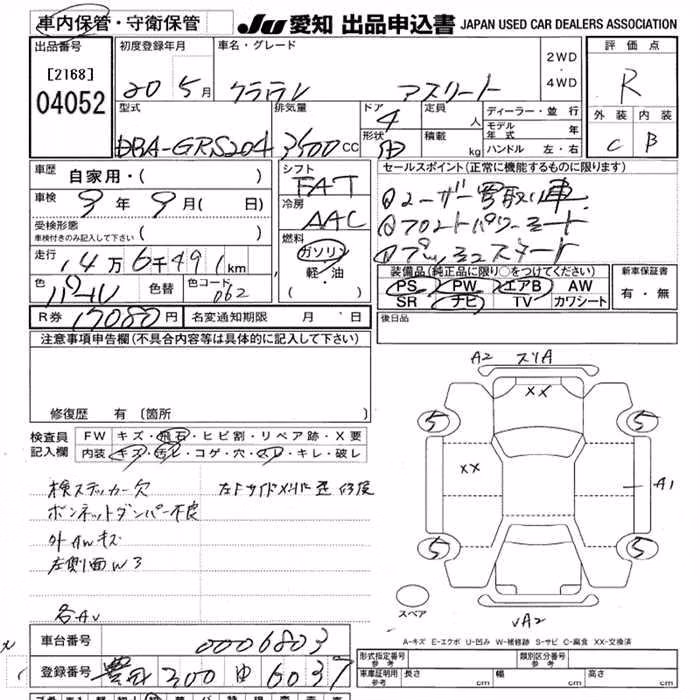 車内保管・守衛保管
JU 愛知 出品申込書 JAPAN USED CAR DEALERS ASSOCIATION
出品番号
[2168]
04052
初度登録年月
20 5月
車名・グレード
クラウン アスリート
2WD
・
4WD
評価点
R
外装 内装
C B
型式
DBA-GRS204
排気量
3500cc
ドア
4
形状
定員
人
積載
kg
ディーラー・並行
モデル年式 年
ハンドル 左・右
車歴
自家用・( )
車検
9年9月( 日)
受検形態
車検付きのみ記入して下さい ( )
走行
14万6千491km
色
パール
色替
色コード
062
シフト
FAT
冷房
AAC
燃料
ガソリン
・
軽・油
( )
セールスポイント(正常に機能するものに限ります)
①ユーザー買取り車
②フロントパワーシート
③プッシュスタート
装備品(純正品に限り○をつけてください)
PS PW エアB AW
SR ナビ TV カワシート
新車保証書
有・無
R券 17080円
名変通知期限 月 日
後日品
注意事項申告欄(不具合内容等は具体的に記入して下さい)
修復歴 有 〔箇所 〕
検査員記入欄
FW キズ・飛石・ヒビ割・リペア跡・X要
内装 キズ・汚レ・コゲ・穴・スレ・キレ・破レ
検ステッカー欠
ボンネットダンパー不良
外AWキズ
左側面W3
各AU
左Fサイドメンバー歪 修復
A2 スリA
XX
5 5
XX
A1
5 5
スペア
A2
A-キズ E-エクボ U-凹み W-補修跡 S-サビ C-腐食 XX-交換済
車台番号
0006803
登録番号
豊田 300 6037
形式指定番号
参考
類別区分番号
参考
車庫証明用
参考
長さ cm
幅 cm
高さ cm